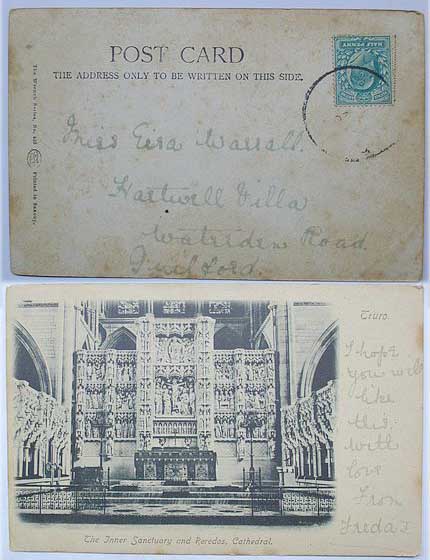 POST CARD
THE ADDRESS ONLY TO BE WRITTEN ON THIS SIDE.
HALF PENNY
The Wrench Series, No.
Printed in Saxony.
Miss Warrall.
Hartwell Villa
Road.
Guilford.
Truro.
I hope
you will
like
this.
With
love
From
Freda
The Inner Sanctuary and Reredos, Cathedral.